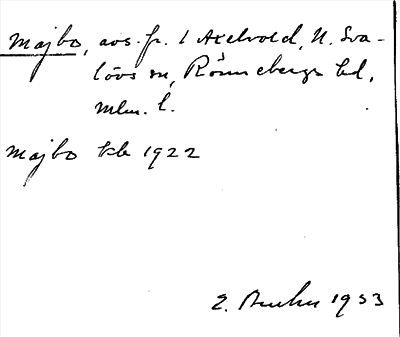 Majbo, avs. fr. 1 Axelvold, N. Sva-
lövs sn, Rönnebergs hd,
mlm. l.
Majbo kb 1922
E. 1953